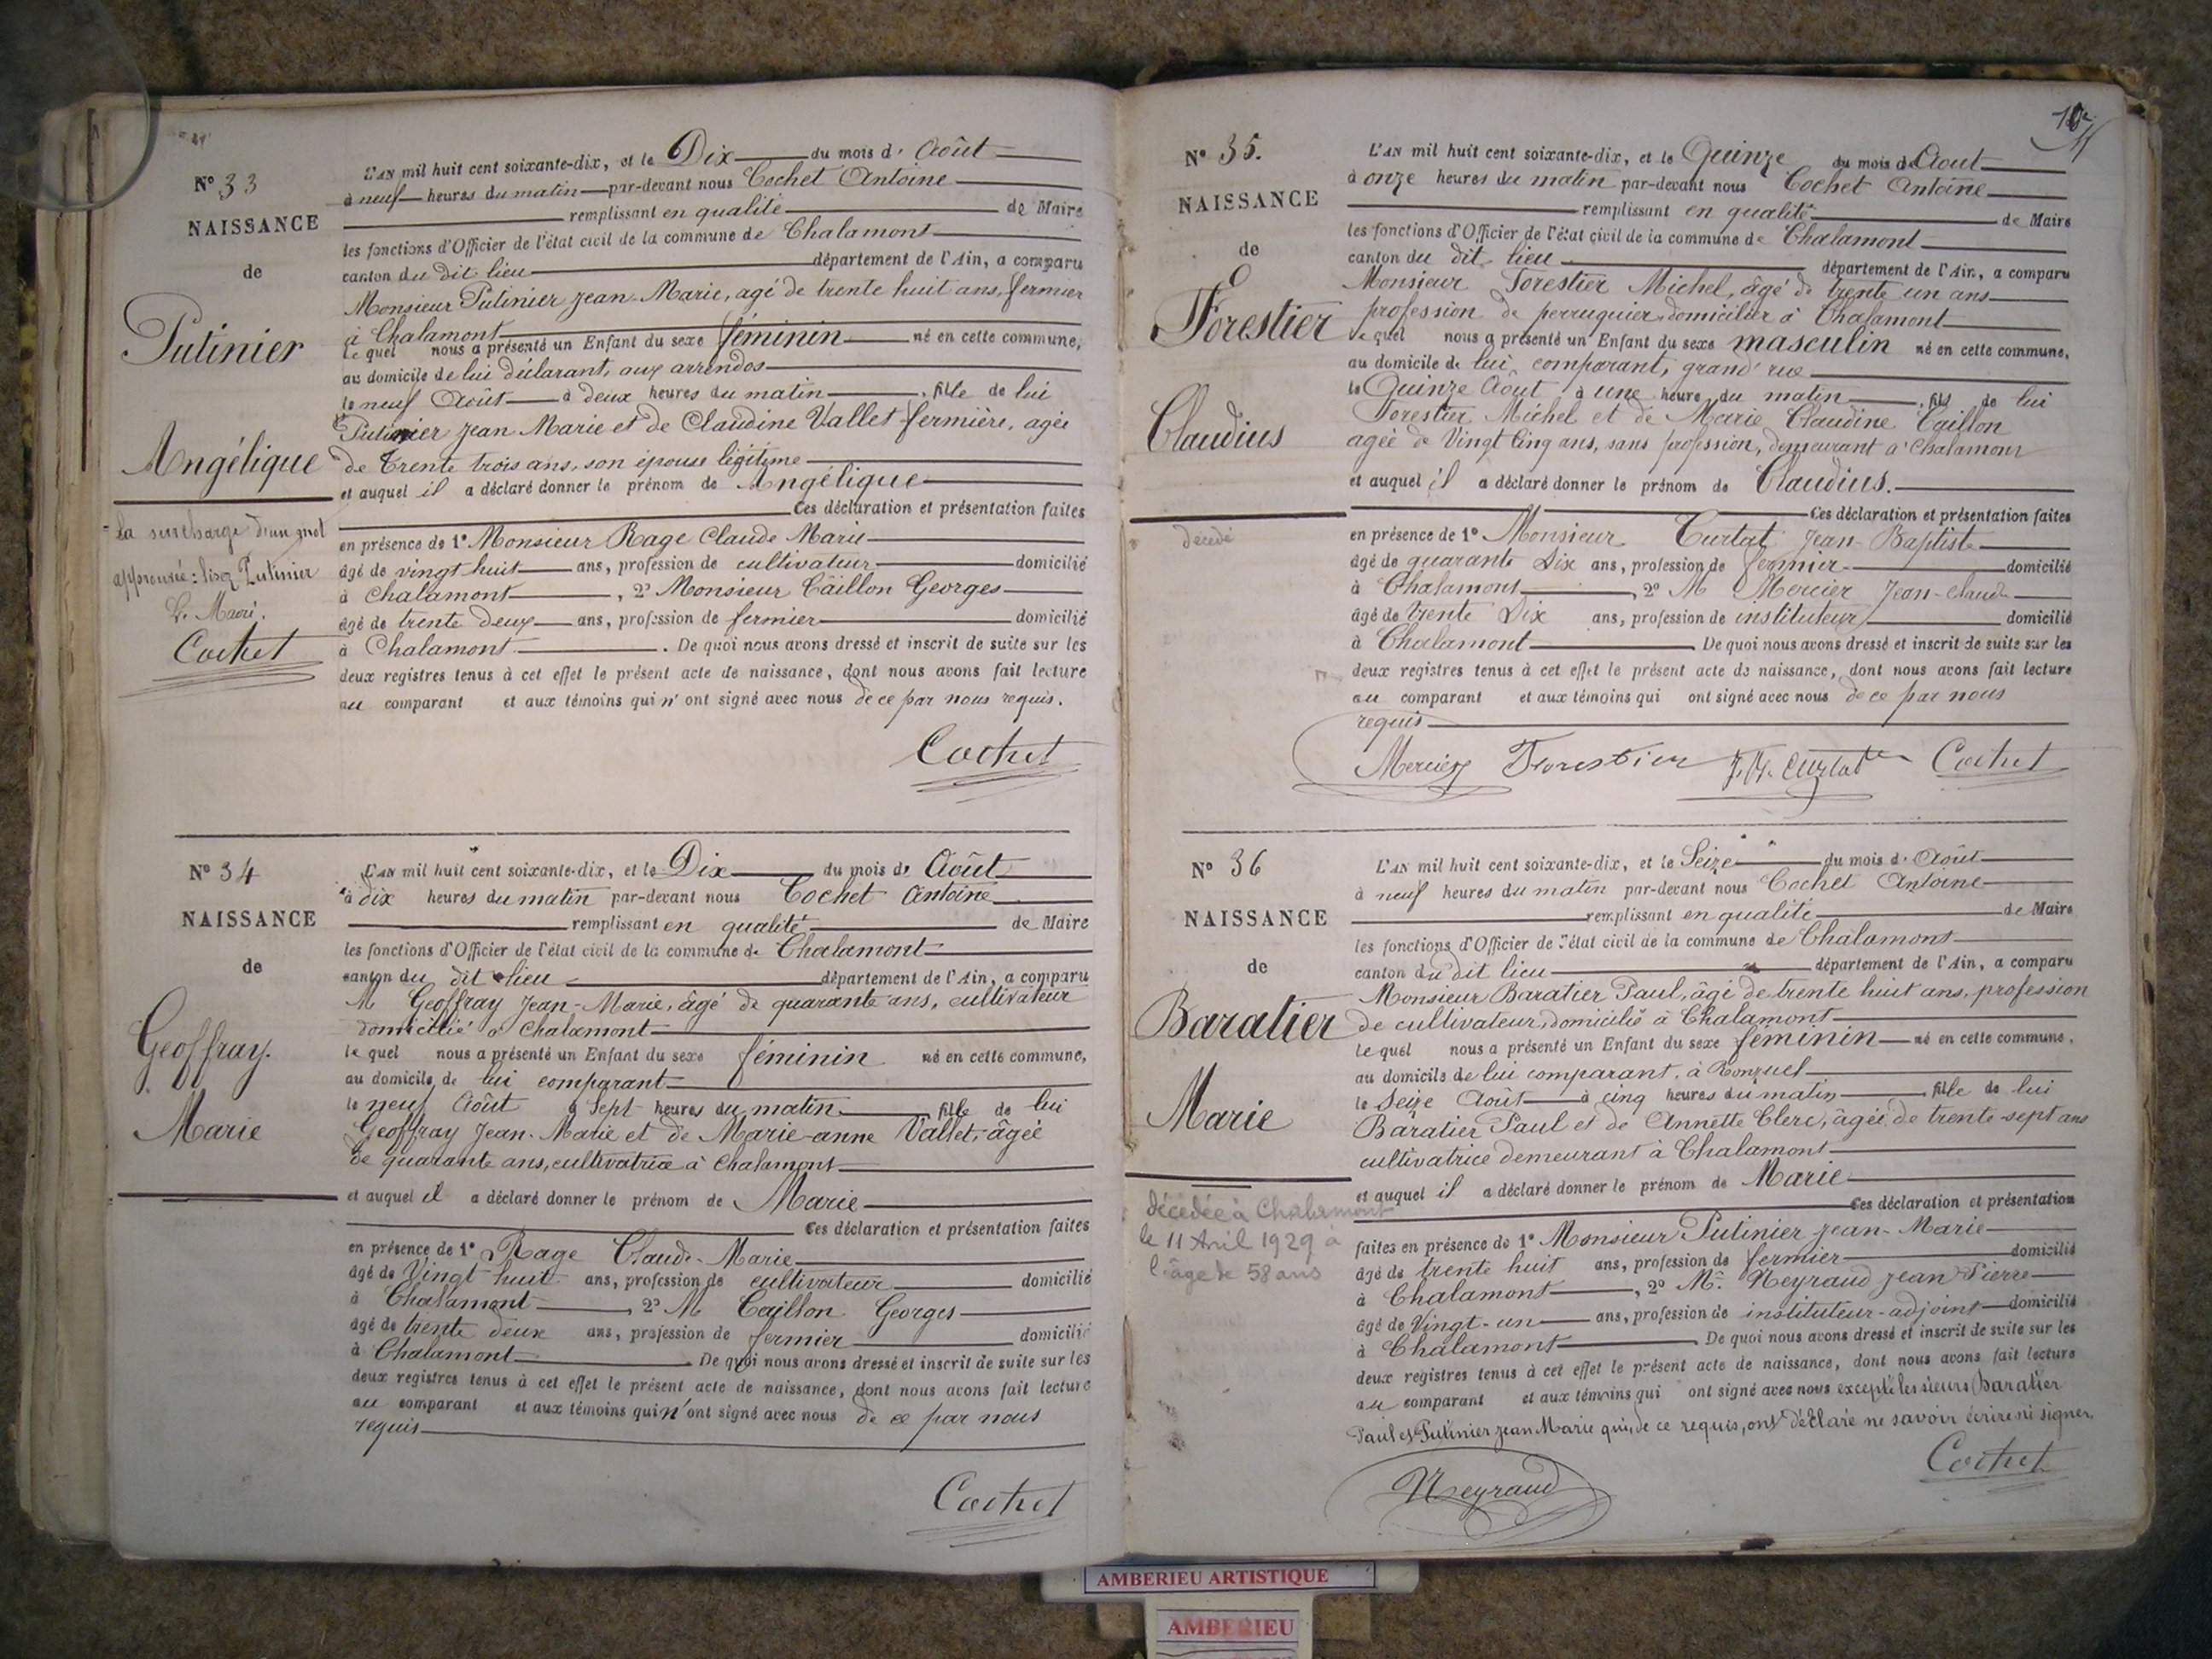 N° 33
NAISSANCE
de
Putinier
Angélique
la surcharge d'un mot
approuvée : lisez Putinier
Le Maire.
Cochet
L'AN mil huit cent soixante-dix, et le Dix du mois d' Août
à neuf heures du matin par-devant nous Cochet Antoine
remplissant en qualité de Maire
les fonctions d'Officier de l'état civil de la commune de Chalamont
canton du dit lieu département de l'Ain, a comparu
Monsieur Putinier Jean Marie, agé de trente huit ans, fermier
à Chalamont
le quel nous a présenté un Enfant du sexe féminin né en cette commune,
au domicile de lui déclarant, aux arrendos
le neuf Août à deux heures du matin , fille de lui
Putinier Jean Marie et de Claudine Vallet fermière, agée
de Trente trois ans, son épouse légitime
et auquel il a déclaré donner le prénom de Angélique
Ces déclaration et présentation faites
en présence de 1° Monsieur Rage Claude Marie
âgé de vingt huit ans, profession de cultivateur domicilié
à Chalamont , 2° Monsieur Caillon Georges
âgé de trente deux ans, profession de fermier domicilié
à Chalamont . De quoi nous avons dressé et inscrit de suite sur les
deux registres tenus à cet effet le présent acte de naissance, dont nous avons fait lecture
au comparant et aux témoins qui n'ont signé avec nous de ce par nous requis.
Cochet
N° 34
NAISSANCE
de
Geoffray.
Marie
L'AN mil huit cent soixante-dix, et le Dix du mois d' Août
à dix heures du matin par-devant nous Cochet Antoine
remplissant en qualité de Maire
les fonctions d'Officier de l'état civil de la commune de Chalamont
canton du dit lieu département de l'Ain, a comparu
M Geoffray Jean-Marie, âgé de quarante ans, cultivateur
domicilié à Chalamont
le quel nous a présenté un Enfant du sexe féminin né en cette commune,
au domicile de lui comparant
le neuf Août à sept heures du matin , fille de lui
Geoffray Jean-Marie et de Marie-anne Vallet, âgée
de quarante ans, cultivatrice à Chalamont
et auquel il a déclaré donner le prénom de Marie
Ces déclaration et présentation faites
en présence de 1° Rage Claude-Marie
âgé de Vingt huit ans, profession de cultivateur domicilié
à Chalamont , 2° M Caillon Georges
âgé de trente deux ans, profession de fermier domicilié
à Chalamont . De quoi nous avons dressé et inscrit de suite sur les
deux registres tenus à cet effet le présent acte de naissance, dont nous avons fait lecture
au comparant et aux témoins qui n'ont signé avec nous de ce par nous
requis
Cochet
N° 35.
NAISSANCE
de
Forestier
Claudius
décédé
L'AN mil huit cent soixante-dix, et le Quinze du mois d'Aout
à onze heures du matin par-devant nous Cochet Antoine
remplissant en qualité de Maire
les fonctions d'Officier de l'état civil de la commune de Chalamont
canton du dit lieu département de l'Ain, a comparu
Monsieur Forestier Michel, âgé de trente un ans
profession de perruquier domicilier à Chalamont
le quel nous a présenté un Enfant du sexe masculin né en cette commune,
au domicile de lui comparant, grand' rue
le Quinze Août à une heure du matin , fils de lui
Forestier Michel et de Marie Claudine Caillon
agée de Vingt Cinq ans, sans profession, demeurant à Chalamont
et auquel il a déclaré donner le prénom de Claudius.
Ces déclaration et présentation faites
en présence de 1° Monsieur Curtat Jean-Baptiste
âgé de quarante Dix ans, profession de fermier domicilié
à Chalamont , 2° M Mercier Jean-Claude
âgé de trente Dix ans, profession de instituteur domicilié
à Chalamont . De quoi nous avons dressé et inscrit de suite sur les
deux registres tenus à cet effet le présent acte de naissance, dont nous avons fait lecture
au comparant et aux témoins qui ont signé avec nous de ce par nous
requis
Mercier Forestier J.B. Curtat Cochet
N° 36
NAISSANCE
de
Baratier
Marie
Décédée à Chalamont
le 11 Avril 1929 à
l'âge de 58 ans
L'AN mil huit cent soixante-dix, et le Seize du mois d' Août
à neuf heures du matin par-devant nous Cochet Antoine
remplissant en qualité de Maire
les fonctions d'Officier de l'état civil de la commune de Chalamont
canton du dit lieu département de l'Ain, a comparu
Monsieur Baratier Paul, âgé de trente huit ans, profession
de cultivateur, domicilié à Chalamont
le quel nous a présenté un Enfant du sexe féminin né en cette commune,
au domicile de lui comparant, à Ronzuel
le Seize Août à cinq heures du matin , fille de lui
Baratier Paul et de Annette Clerc, âgée de trente-sept ans
cultivatrice demeurant à Chalamont
et auquel il a déclaré donner le prénom de Marie
Ces déclaration et présentation
faites en présence de 1° Monsieur Putinier Jean-Marie
âgé de trente huit ans, profession de fermier domicilié
à Chalamont , 2° Mr. Neyraud Jean Pierre
âgé de Vingt-un ans, profession de instituteur-adjoint domicilié
à Chalamont . De quoi nous avons dressé et inscrit de suite sur les
deux registres tenus à cet effet le présent acte de naissance, dont nous avons fait lecture
au comparant et aux témoins qui ont signé avec nous excepté les sieurs Baratier
Paul et Putinier Jean Marie qui, de ce requis, ont déclaré ne savoir écrire ni signer.
Cochet
Neyraud
AMBERIEU ARTISTIQUE
AMBERIEU